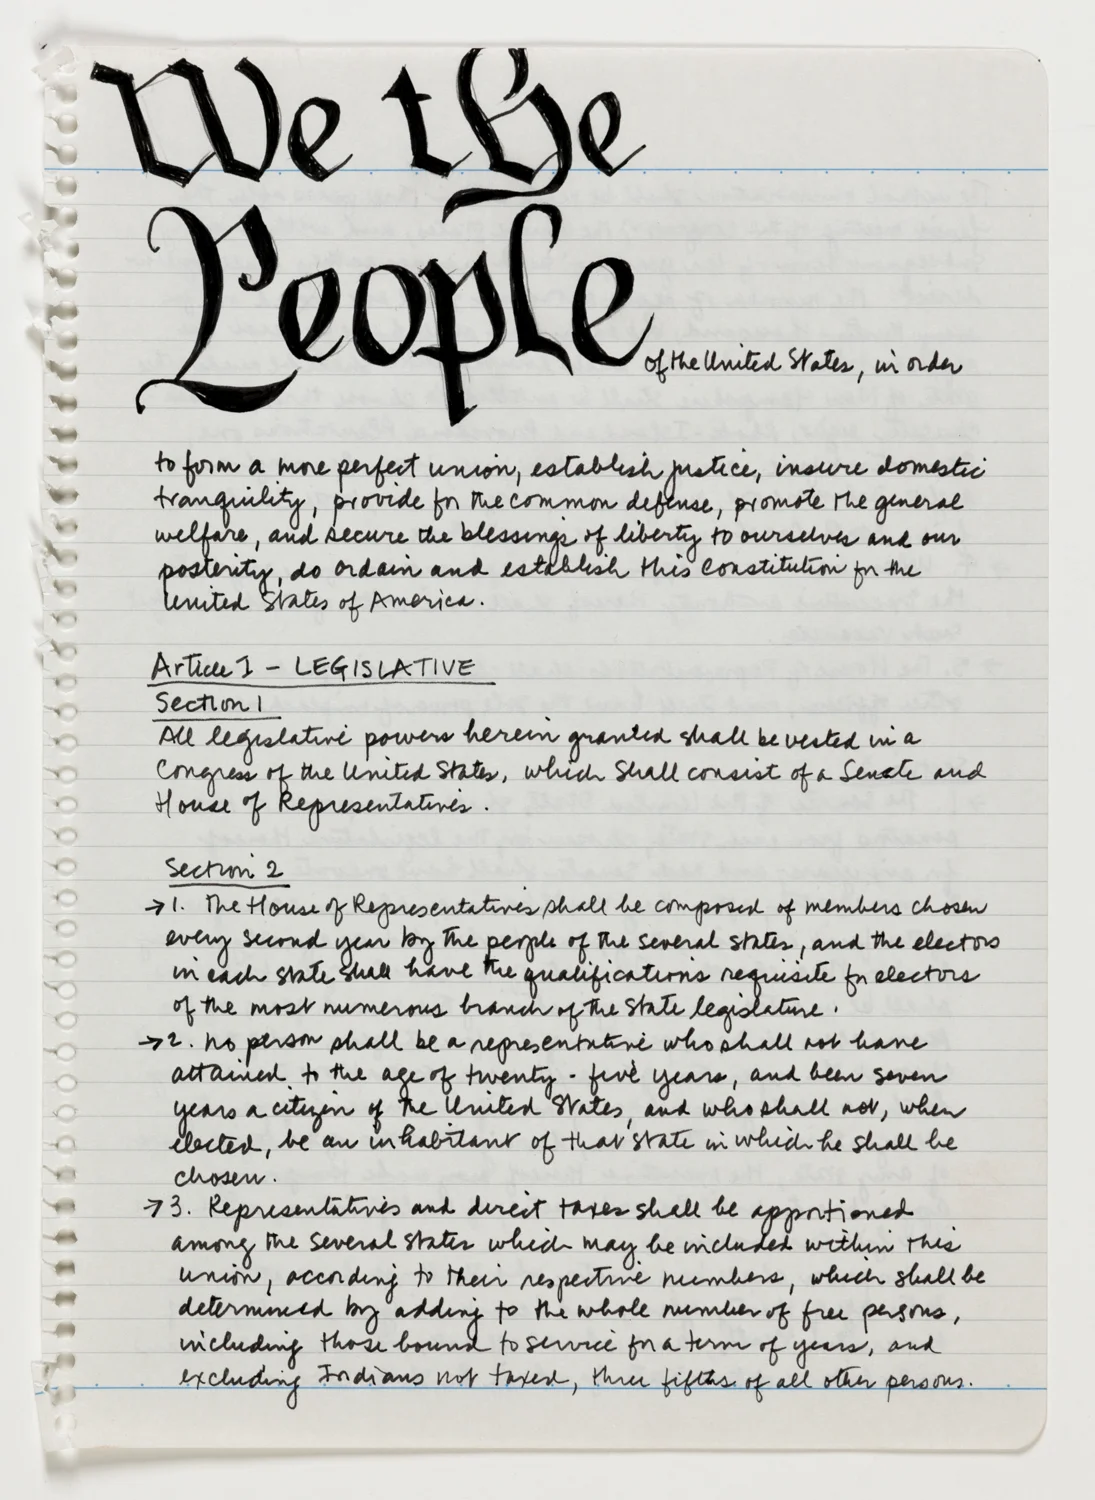 We the
People
of the United States, in order
to form a more perfect union, establish justice, insure domestic
tranquility, provide for the common defense, promote the general
welfare, and secure the blessings of liberty to ourselves and our
posterity, do ordain and establish this Constitution for the
United States of America.
Article I - LEGISLATIVE
Section 1
All legislative powers herein granted shall be vested in a
Congress of the United States, which shall consist of a Senate and
House of Representatives.
Section 2
→ 1. The House of Representatives shall be composed of members chosen
every second year by the people of the several states, and the electors
in each state shall have the qualifications requisite for electors
of the most numerous branch of the State legislature.
→ 2. No person shall be a representative who shall not have
attained to the age of twenty-five years, and been seven
years a citizen of the United States, and who shall not, when
elected, be an inhabitant of that state in which he shall be
chosen.
→ 3. Representatives and direct taxes shall be apportioned
among the several states which may be included within this
union, according to their respective numbers, which shall be
determined by adding to the whole number of free persons,
including those bound to service for a term of years, and
excluding Indians not taxed, three fifths of all other persons.